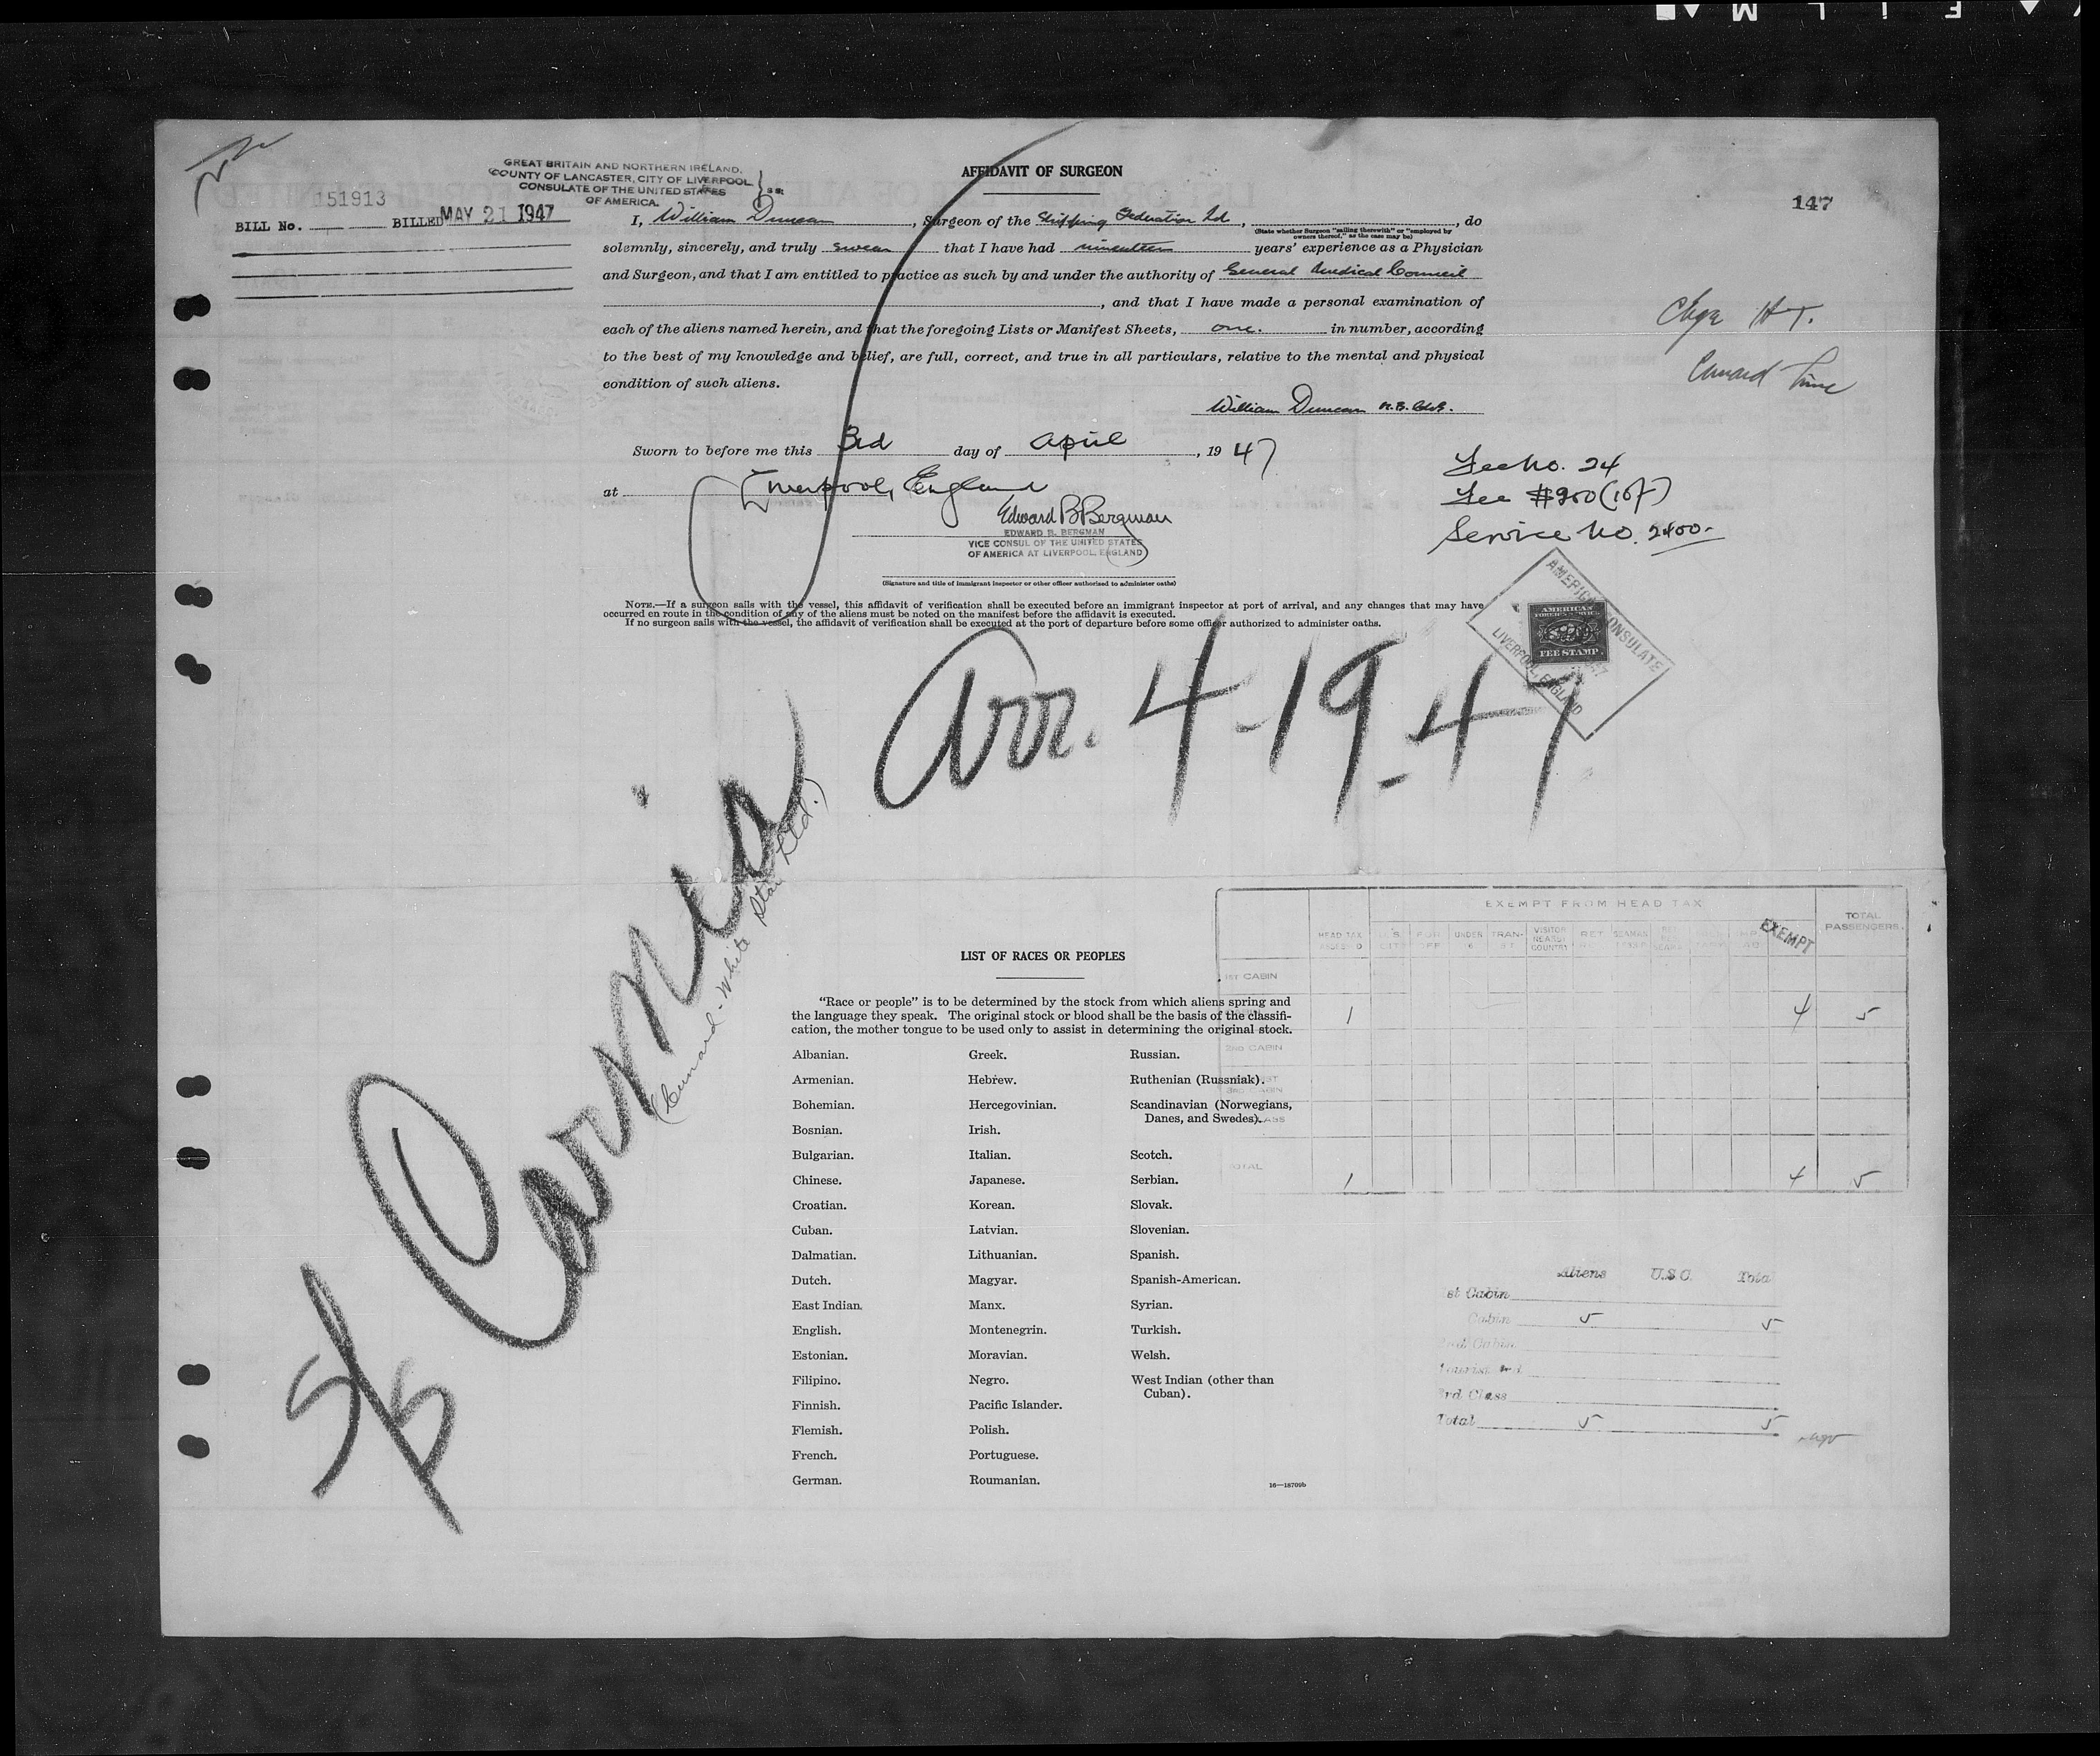 GREAT BRITAIN AND NORTHERN IRELAND,
COUNTY OF LANCASTER, CITY OF LIVERPOOL
CONSULATE OF THE UNITED STATES
OF AMERICA.
} ss:
AFFIDAVIT OF SURGEON
147
BILL No. 151913 BILLED MAY 21 1947
I, William Duncan, Surgeon of the Shipping Federation Ld, , do
(State whether Surgeon "sailing therewith" or "employed by
owners thereof," as the case may be)
solemnly, sincerely, and truly swear that I have had nineteen years' experience as a Physician
and Surgeon, and that I am entitled to practice as such by and under the authority of General Medical Council
, and that I have made a personal examination of
each of the aliens named herein, and that the foregoing Lists or Manifest Sheets, one. in number, according
to the best of my knowledge and belief, are full, correct, and true in all particulars, relative to the mental and physical
condition of such aliens.
Chge H T.
Cunard Line
William Duncan M.B. Ch.B.
Sworn to before me this 3rd day of April, 1947
at Liverpool, England
Fee No. 24
Service No. 2400-
Edward B Bergman
EDWARD B. BERGMAN
VICE CONSUL OF THE UNITED STATES
OF AMERICA AT LIVERPOOL, ENGLAND
(Signature and title of immigrant inspector or other officer authorized to administer oaths)
NOTE.—If a surgeon sails with the vessel, this affidavit of verification shall be executed before an immigrant inspector at port of arrival, and any changes that may have
occurred en route in the condition of any of the aliens must be noted on the manifest before the affidavit is executed.
If no surgeon sails with the vessel, the affidavit of verification shall be executed at the port of departure before some officer authorized to administer oaths.
AMERICAN CONSULATE
LIVERPOOL, ENGLAND
AMERICAN
FOREIGN SERVICE
FEE STAMP
Arr. 4-19-47
S/S Carmia
(Cunard-White Star Ltd.)
EXEMPT FROM HEAD TAX
HEAD TAX
U.S. CIT
FOR OFF
UNDER 6
TRANSIT
VISITOR NEARBY COUNTRY
RET
SEAMAN
EXEMPT
TOTAL PASSENGERS.
1ST CABIN
1 4 5
2ND CABIN
TOTAL 1 4 5
LIST OF RACES OR PEOPLES
"Race or people" is to be determined by the stock from which aliens spring and
the language they speak. The original stock or blood shall be the basis of the classifi-
cation, the mother tongue to be used only to assist in determining the original stock.
Albanian.
Armenian.
Bohemian.
Bosnian.
Bulgarian.
Chinese.
Croatian.
Cuban.
Dalmatian.
Dutch.
East Indian.
English.
Estonian.
Filipino.
Finnish.
Flemish.
French.
German.
Greek.
Hebrew.
Hercegovinian.
Irish.
Italian.
Japanese.
Korean.
Latvian.
Lithuanian.
Magyar.
Manx.
Montenegrin.
Moravian.
Negro.
Pacific Islander.
Polish.
Portuguese.
Roumanian.
Russian.
Ruthenian (Russniak).
Scandinavian (Norwegians,
Danes, and Swedes).
Scotch.
Serbian.
Slovak.
Slovenian.
Spanish.
Spanish-American.
Syrian.
Turkish.
Welsh.
West Indian (other than
Cuban).
16—18709b
Aliens U.S.C. Total
st Cabin
Cabin 5 5
2nd Cabin
Tourist 3rd
3rd Class
Total 5 5